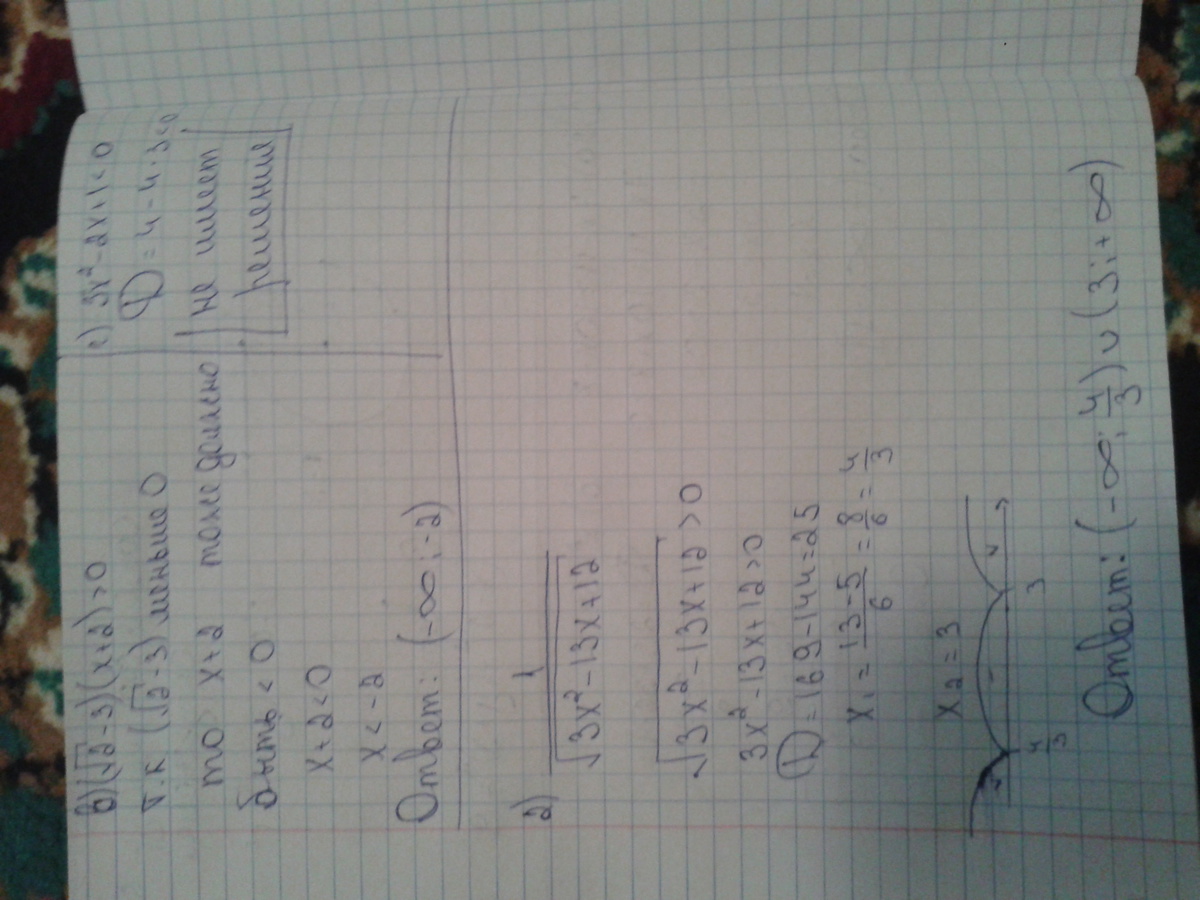 в) (√2-3)(x+2)>0
т.к (√2-3) меньше 0
то x+2 тоже должно
быть < 0
x+2<0
x<-2
Ответ: (-∞;-2)
г) 3x²-2x+1<0
D=4-4·3<0
не имеет
решение
2) 1/√3x²-13x+12
√3x²-13x+12>0
3x²-13x+12>0
D=169-144=25
x₁=13-5/6=8/6=4/3
x₂=3
4/3 - 3
Ответ: (-∞;4/3)∪(3;+∞)